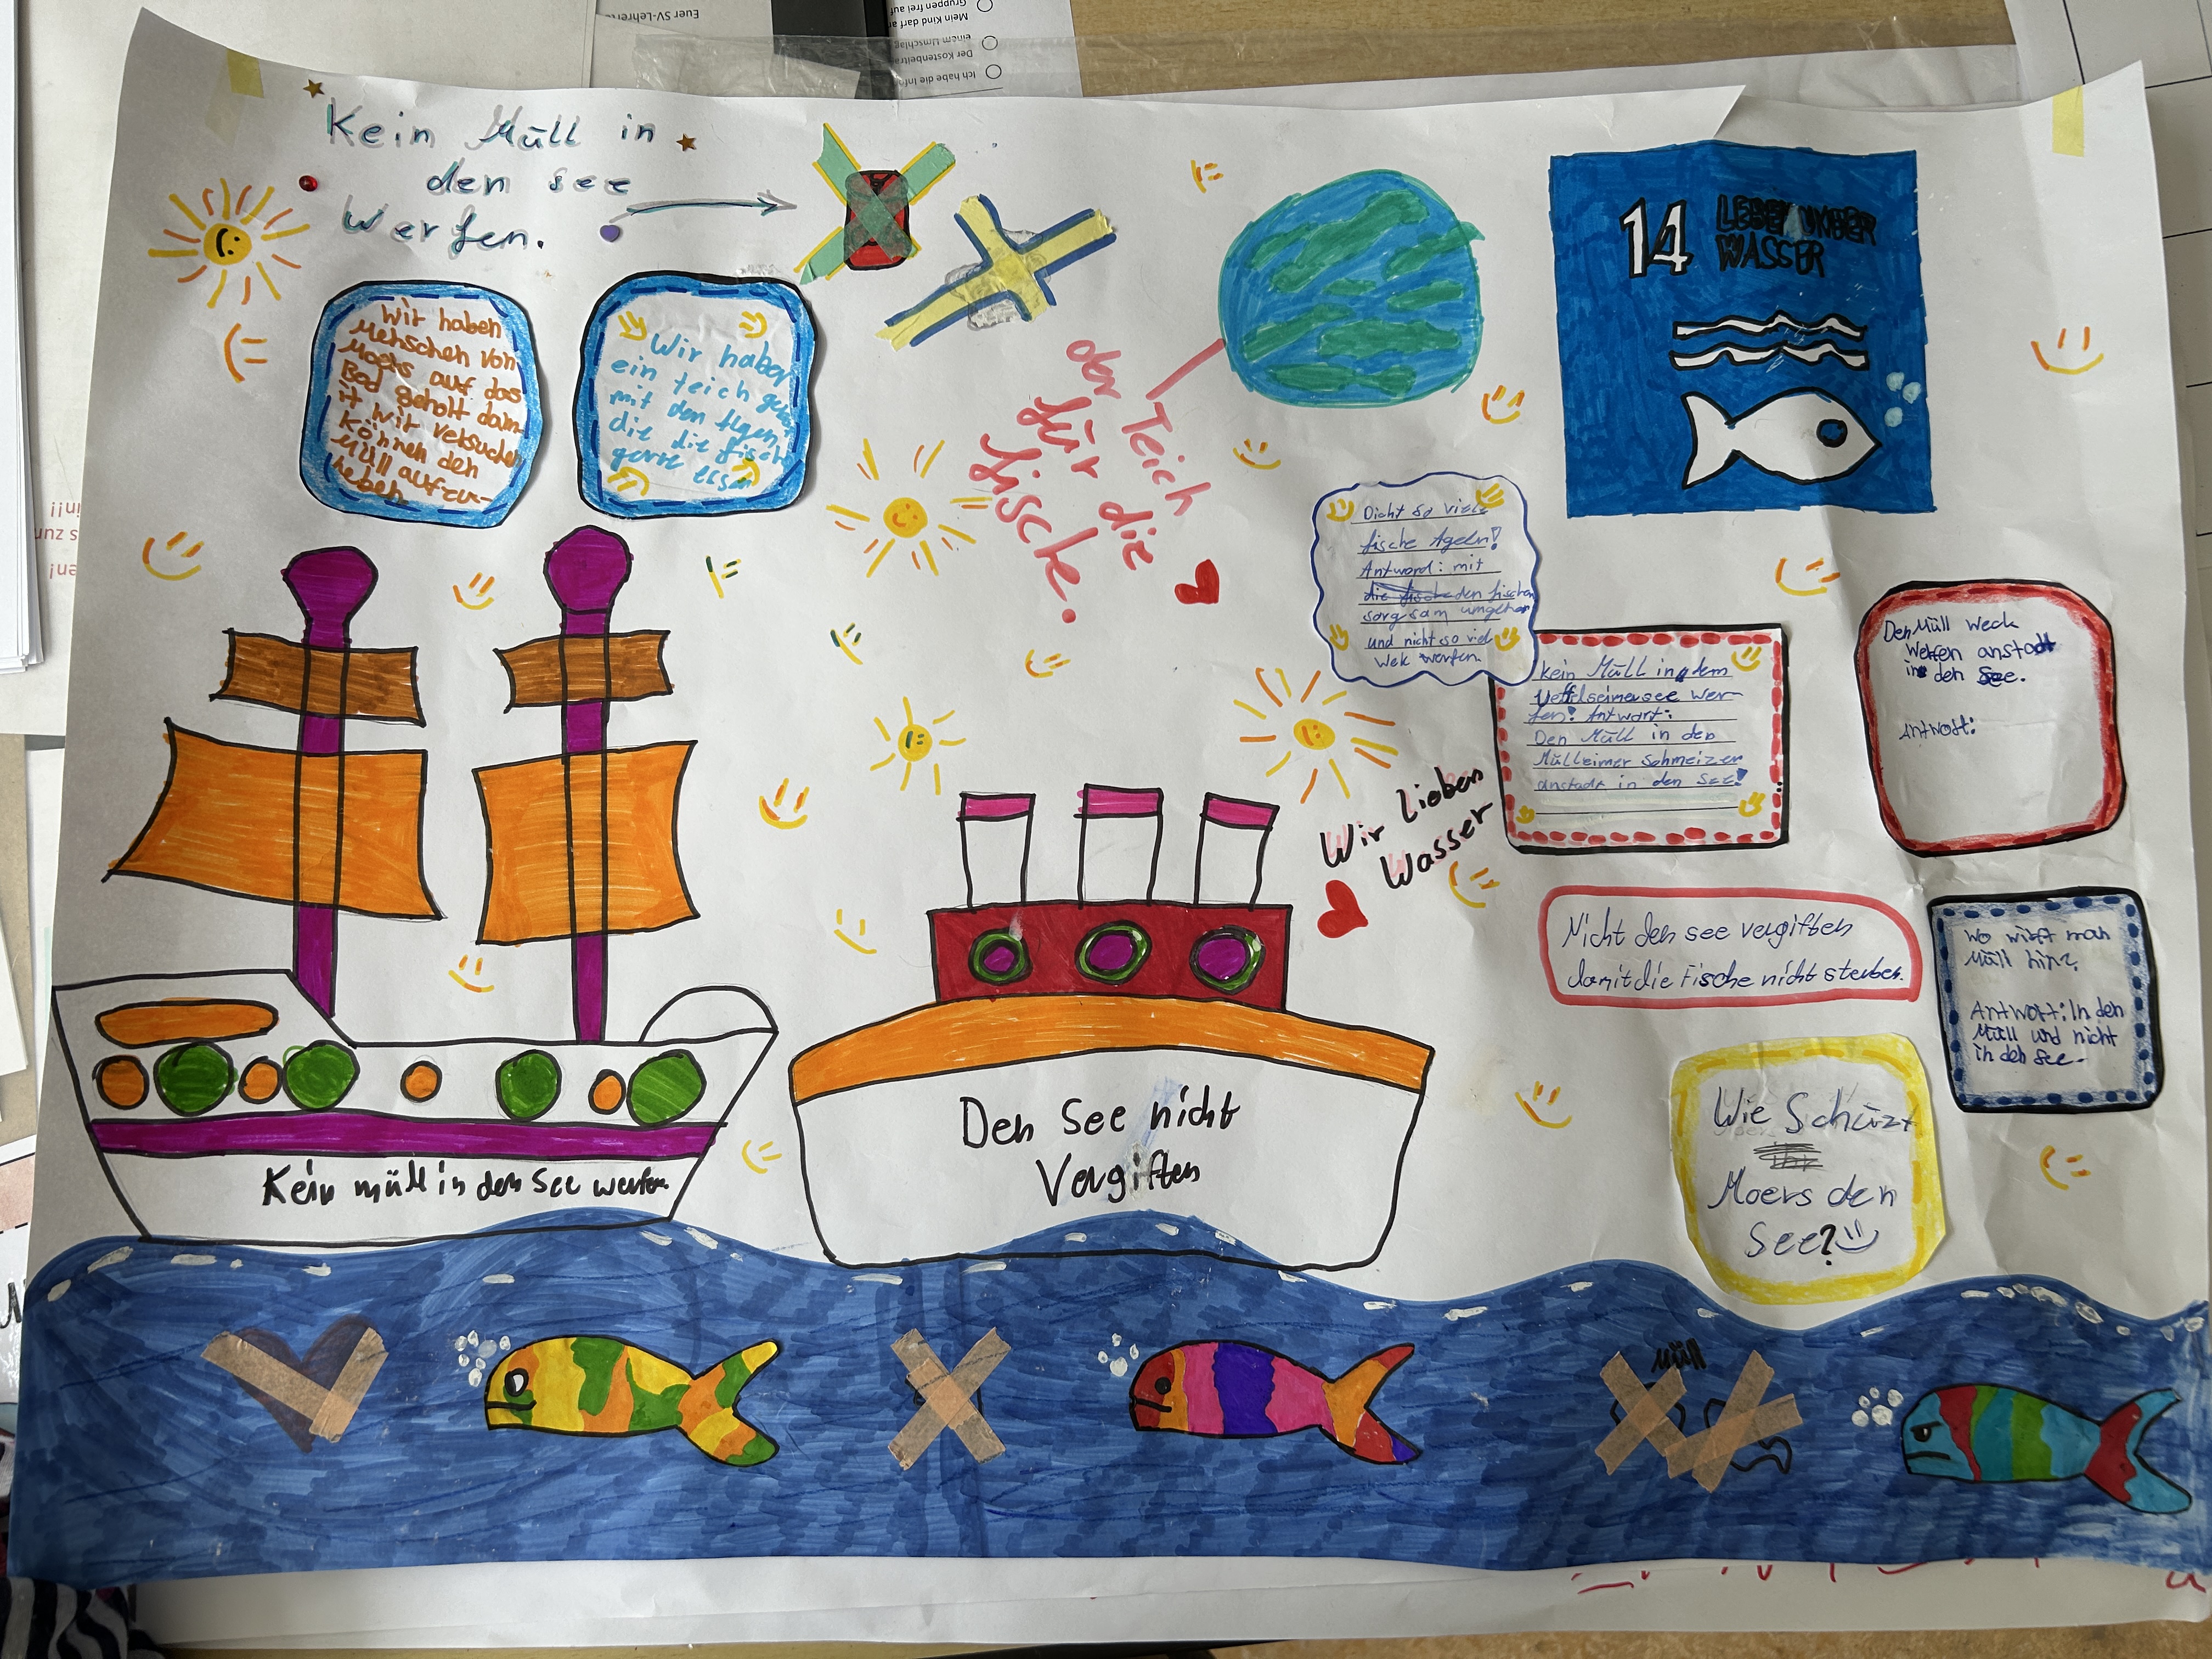 Euer SV-Lehrerte
Gruppen frei auf
Mein Kind darf an
einem Umschlag
Der Kostenbeitra
Ich habe die Info
Kein Müll in
den see
Werfen.
Wir haben
Menschen von
Moers auf das
Bad geholt dam-
it wir versuchen
können den
Müll aufzu-
heben
Wir haben
ein teich
mit den
die die fische
gerne essen
der Teich
für die
fische.
14 LEBEN UNTER
WASSER
Dicht so viele
fische Ageln!
Antword: mit
die fische den fischen
sorgsam umgehen
und nicht so viel
Wek werfen.
kein Müll in dem
see wer-
fen! Antwort:
Den Müll in den
Mülleimer Schmeizen
anstadt in den See!
Den Müll weck
werfen anstadt
in den See.
Antwort:
Wir Lieben
Wasser
Nicht den see vergiften
damit die Fische nicht sterben.
Wo wirft man
Müll hin?
Antwort: In den
Müll und nicht
in den See.
Wie Schüzt
Moers den
See?
Kein müll in den See werfen.
Den See nicht
Vergiften
Müll